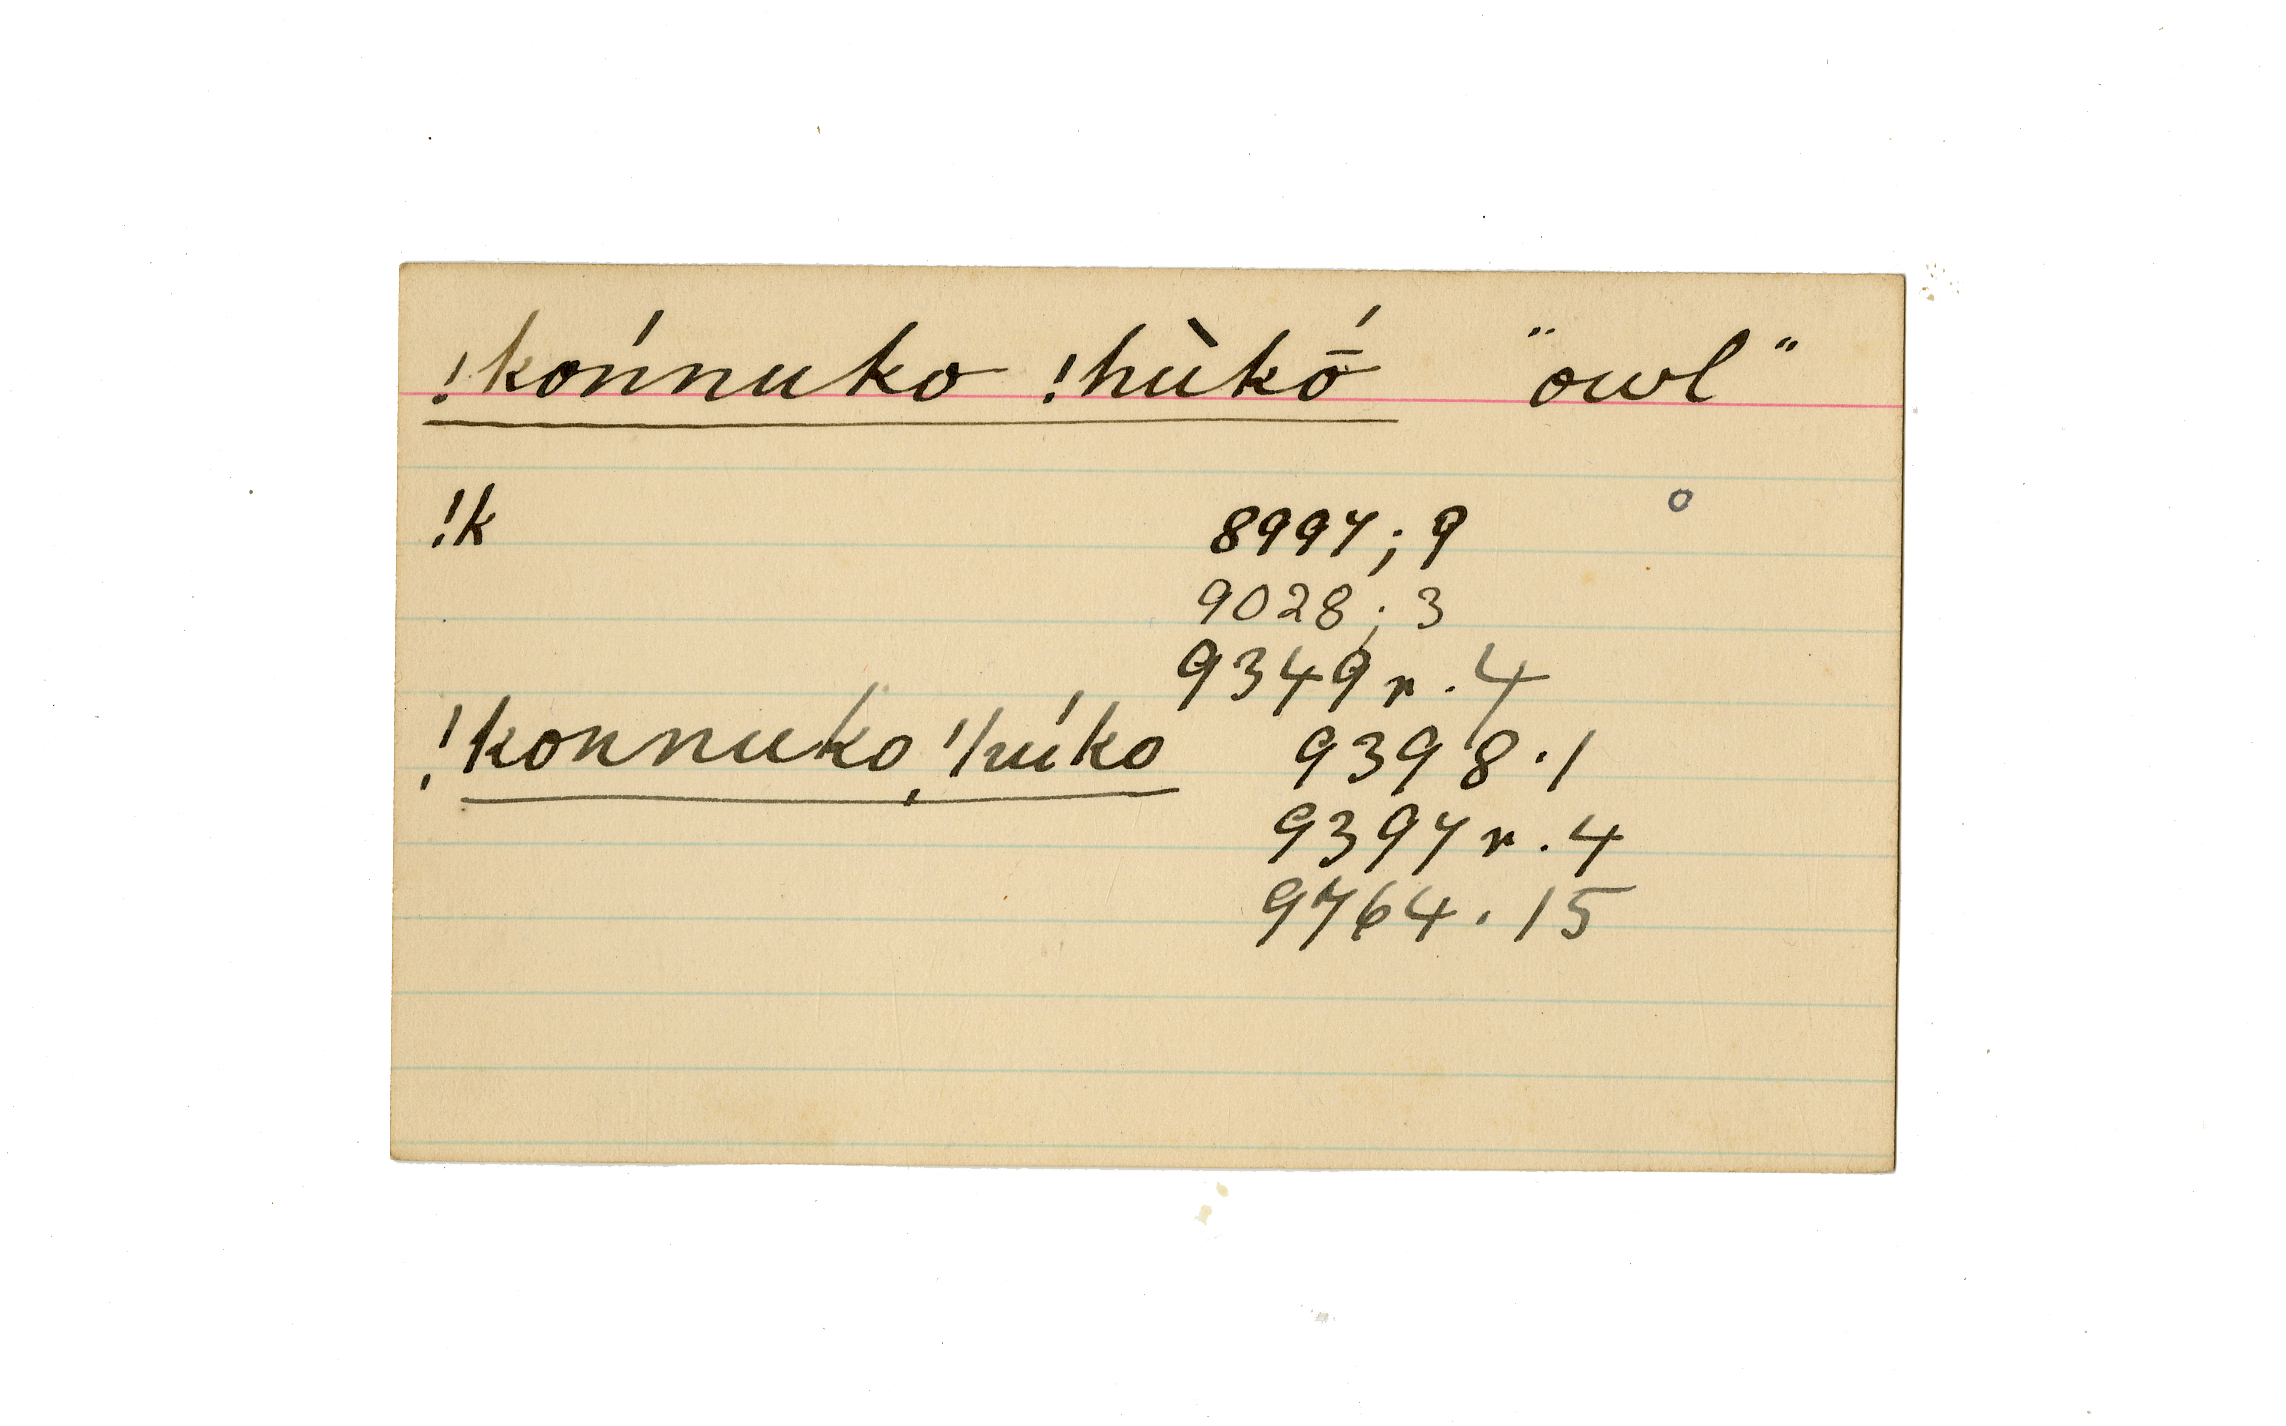 !końnuko !hùkṓ "owl"
!k 8997; 9
9028; 3
9349 r. 4
!konnuko !húko 9398. 1
9397 r. 4
9764. 15